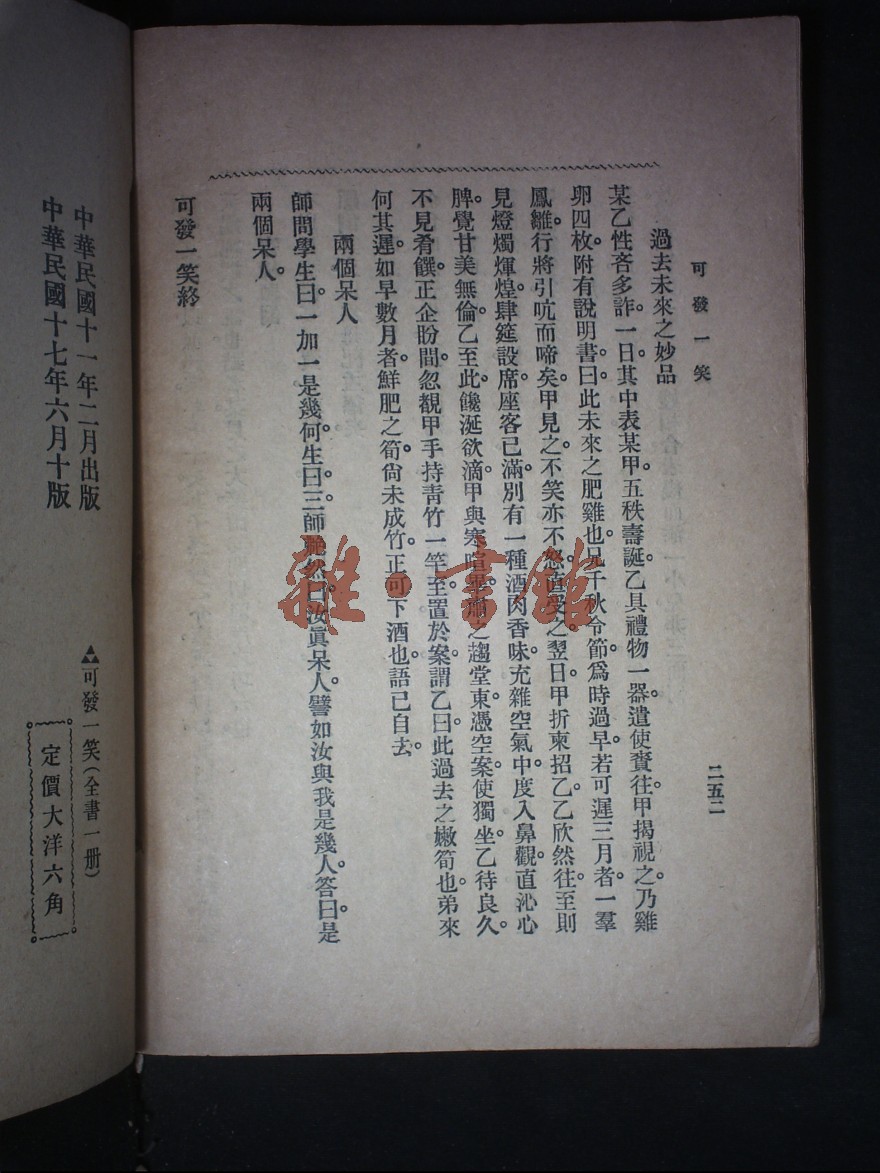 可發一笑
二五二
過去未來之妙品
某乙性吝多詐。一日其中表某甲五秩壽誕。乙具禮物一器。遣使賫往。甲揭視之。乃雞
卵四枚。附有說明書。曰此未來之肥雞也。兄千秋令節。爲時過早。若可遲三月者。一羣
鳳雛。行將引吭而啼矣。甲見之。不笑亦不怒。直受之。翌日甲折柬招乙。乙欣然往。至則
見燈燭煇煌。肆筵設席。座客已滿。別有一種酒肉香味。充雜空氣中。度入鼻觀。直沁心
脾。覺甘美無倫。乙至此。饞涎欲滴。甲與寒暄畢。之趨堂東。憑空案。使獨坐。乙待良久。
不見肴饌。正企盼間。忽覩甲手持靑竹一竿。至置於案。謂乙曰。此過去之嫩筍也。弟來
何其遲。如早數月者。鮮肥之筍。尙未成竹。正可下酒也。語已自去。
兩個呆人
師問學生曰。一加一是幾何。生曰。三。師 然曰。汝眞呆人。譬如汝與我是幾人。答曰。是
兩個呆人。
可發一笑終
中華民國十一年二月出版
中華民國十七年六月十版
可發一笑(全書一册)
定價大洋六角
雜·書館